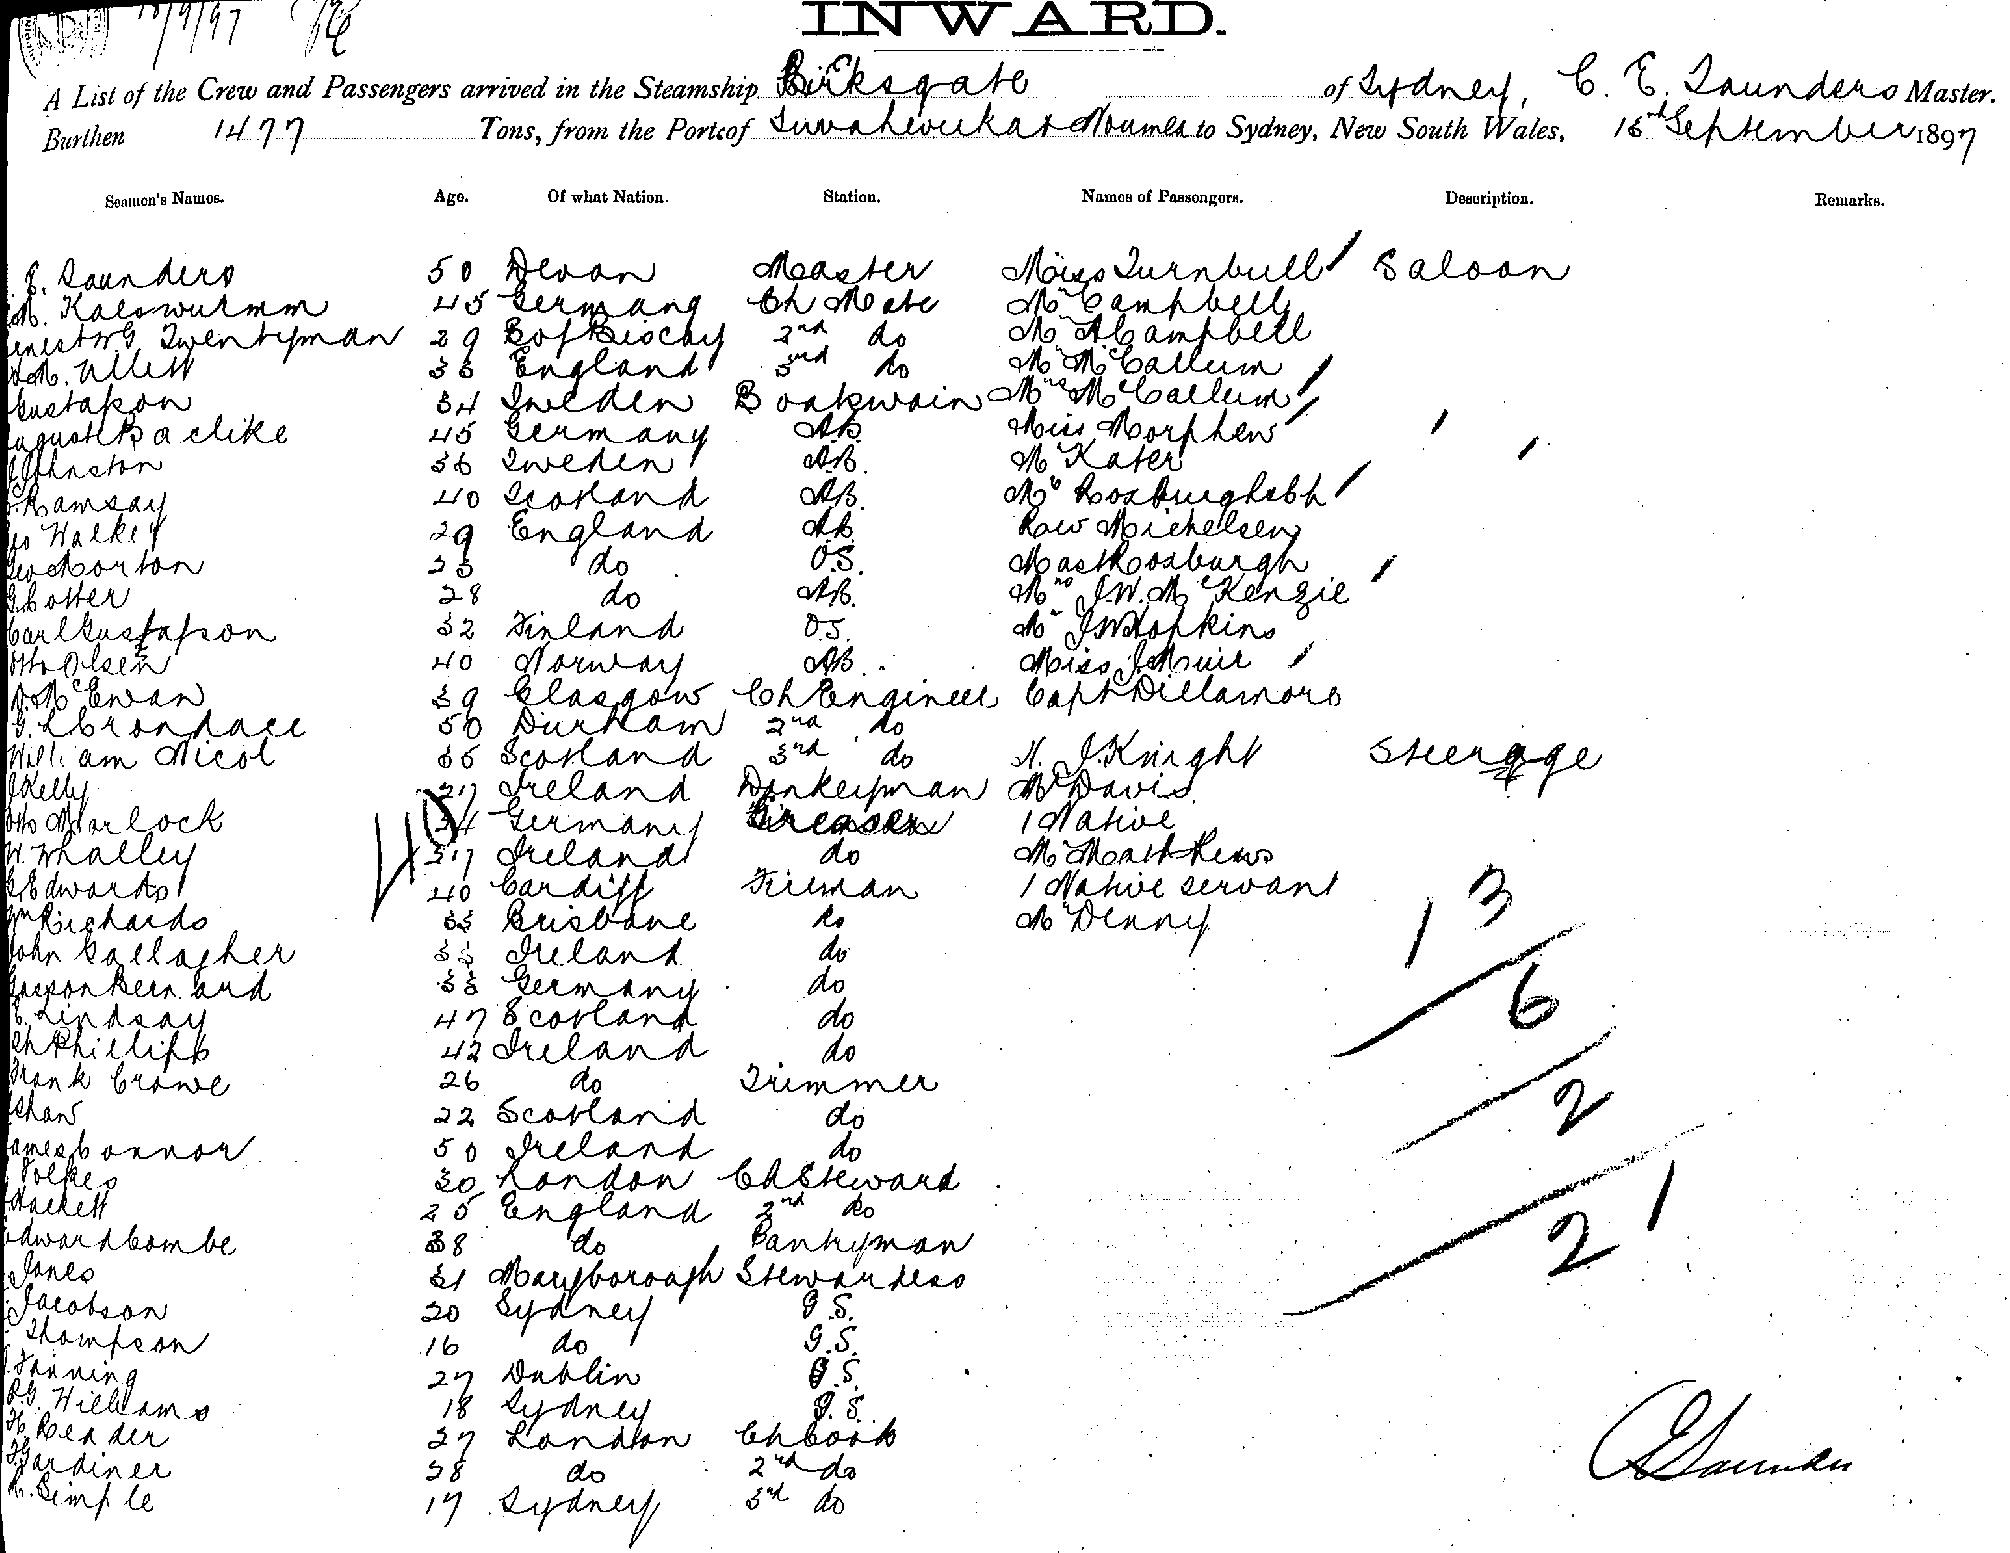 15/9/97
INWARD.
A List of the Crew and Passengers arrived in the Steamship Birksgate of Sydney, C. E. Saunders Master.
Burthen 1477 Tons, from the Ports of Suva Levuka & Noumea to Sydney, New South Wales, 15th September 1897
Seamen's Names. Age. Of what Nation. Station. Names of Passengers. Description. Remarks.
E. Saunders 50 Devon Master Miss Turnbull Saloon
M. Kalswurmm 45 Germany Ch Mate Mr Campbell
Twentyman 29 B of Biscay 2nd do Mr A Campbell
M. Ullett 33 England 3rd do Mr McCallum
Gustafson 34 Sweden Boatswain Mrs McCallum
August Radike 45 Germany A.B. Miss Morphew
Johnston 36 Sweden A.B. Mr Kater
Ramsay 40 Scotland A.B. Mrs Roxburgh & Ch
Walker 29 England A.B. Rev Michelsen
Geo Morton 23 do O.S. Mast Roxburgh
Cotter 28 do A.B. Mrs J.W. McKenzie
Carl Gustafson 32 Finland O.S. Mr J W Hopkins
Otto Olsen 40 Norway A.B. Miss J Muir
McEwan 39 Glasgow Ch Engineer Capt Dillamore
G. L Crondace 50 Durham 2nd do
William Nicol 35 Scotland 3rd do J. Knight Steerage
J Kelly 27 Ireland Donkeyman Mr Davis
Otto Morlock 34 Germany Greaser 1 Native
W. Whalley 37 Ireland do Mr Matthews
Edwards 40 Cardiff Fireman 1 Native servant
Wm Richards 33 Brisbane do Mr Denny
John Gallagher 33 Ireland do
Bernard 33 Germany do
E. Lindsay 47 Scotland do
Phillips 42 Ireland do
Frank Crowe 26 do Trimmer
Shaw 22 Scotland do
James Connor 50 Ireland do
Folkes 30 London Ch Steward
Hackett 25 England 2nd do
Edward Combe 38 do Pantryman
Jones 31 Maryborough Stewardess
Jacobson 20 Sydney G.S.
Thompson 16 do G.S.
Fanning 27 Dublin G.S.
Williams 18 Sydney G.S.
H Reader 27 London Ch Cook
Gardiner 28 do 2nd do
Simple 17 Sydney 3rd do
40
13
6
2
21
CESaunders